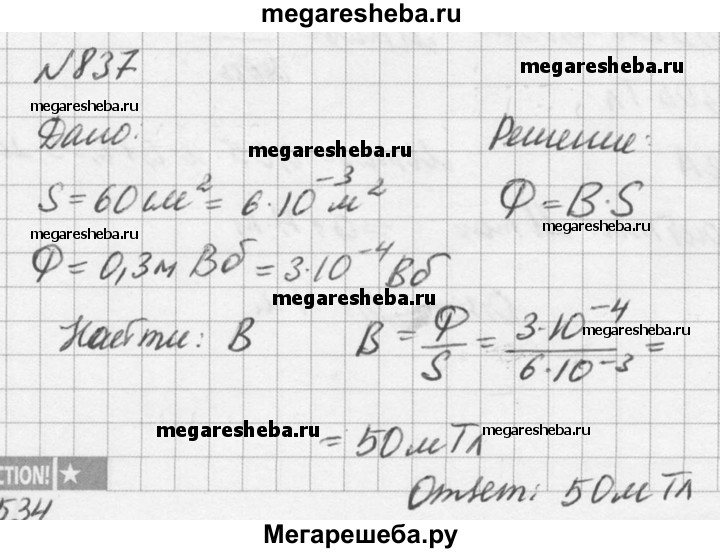 megaresheba.ru
№837
megaresheba.ru
megaresheba.ru
Дано:
megaresheba.ru
Решение:
megaresheba.ru
S = 60 см² = 6·10⁻³ м²
Ф = B·S
megaresheba.ru
megaresheba.ru
Ф = 0,3 м Вб = 3·10⁻⁴ Вб
megaresheba.ru
megaresheba.ru
Найти: B
B = Ф/S = 3·10⁻⁴/6·10⁻³ =
megaresheba.ru
megaresheba.ru
= 50 мТл
megaresheba.ru
CTION!
Ответ: 50 мТл
534
Мегарешеба.ру